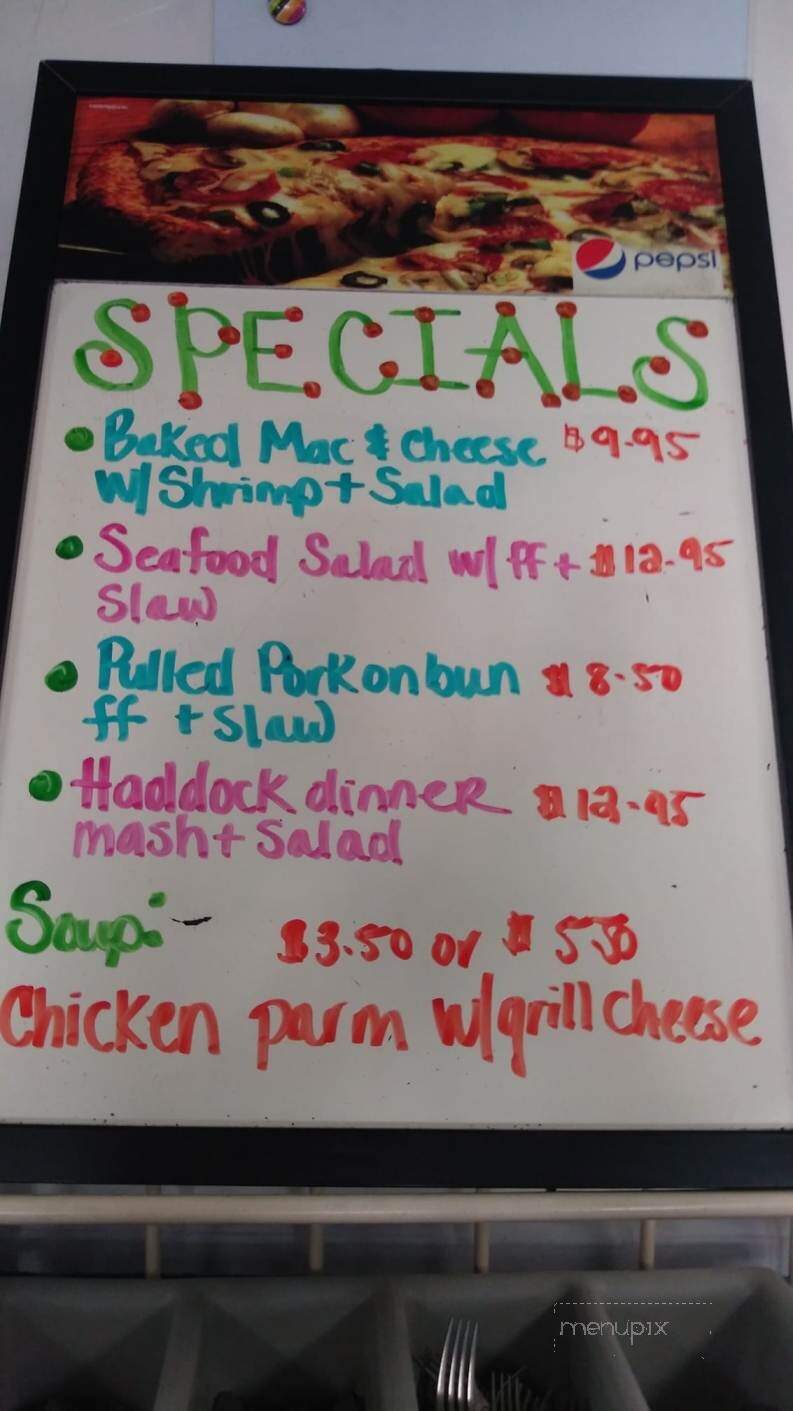 pepsi
SPECIALS
Baked Mac & Cheese $9.95
w/ Shrimp + Salad
Seafood Salad w/ ff + $12.95
Slaw
Pulled Pork on bun $8.50
ff + Slaw
Haddock dinner $12.95
mash + Salad
Soup: $3.50 or $5.50
Chicken parm w/grill cheese
menupix